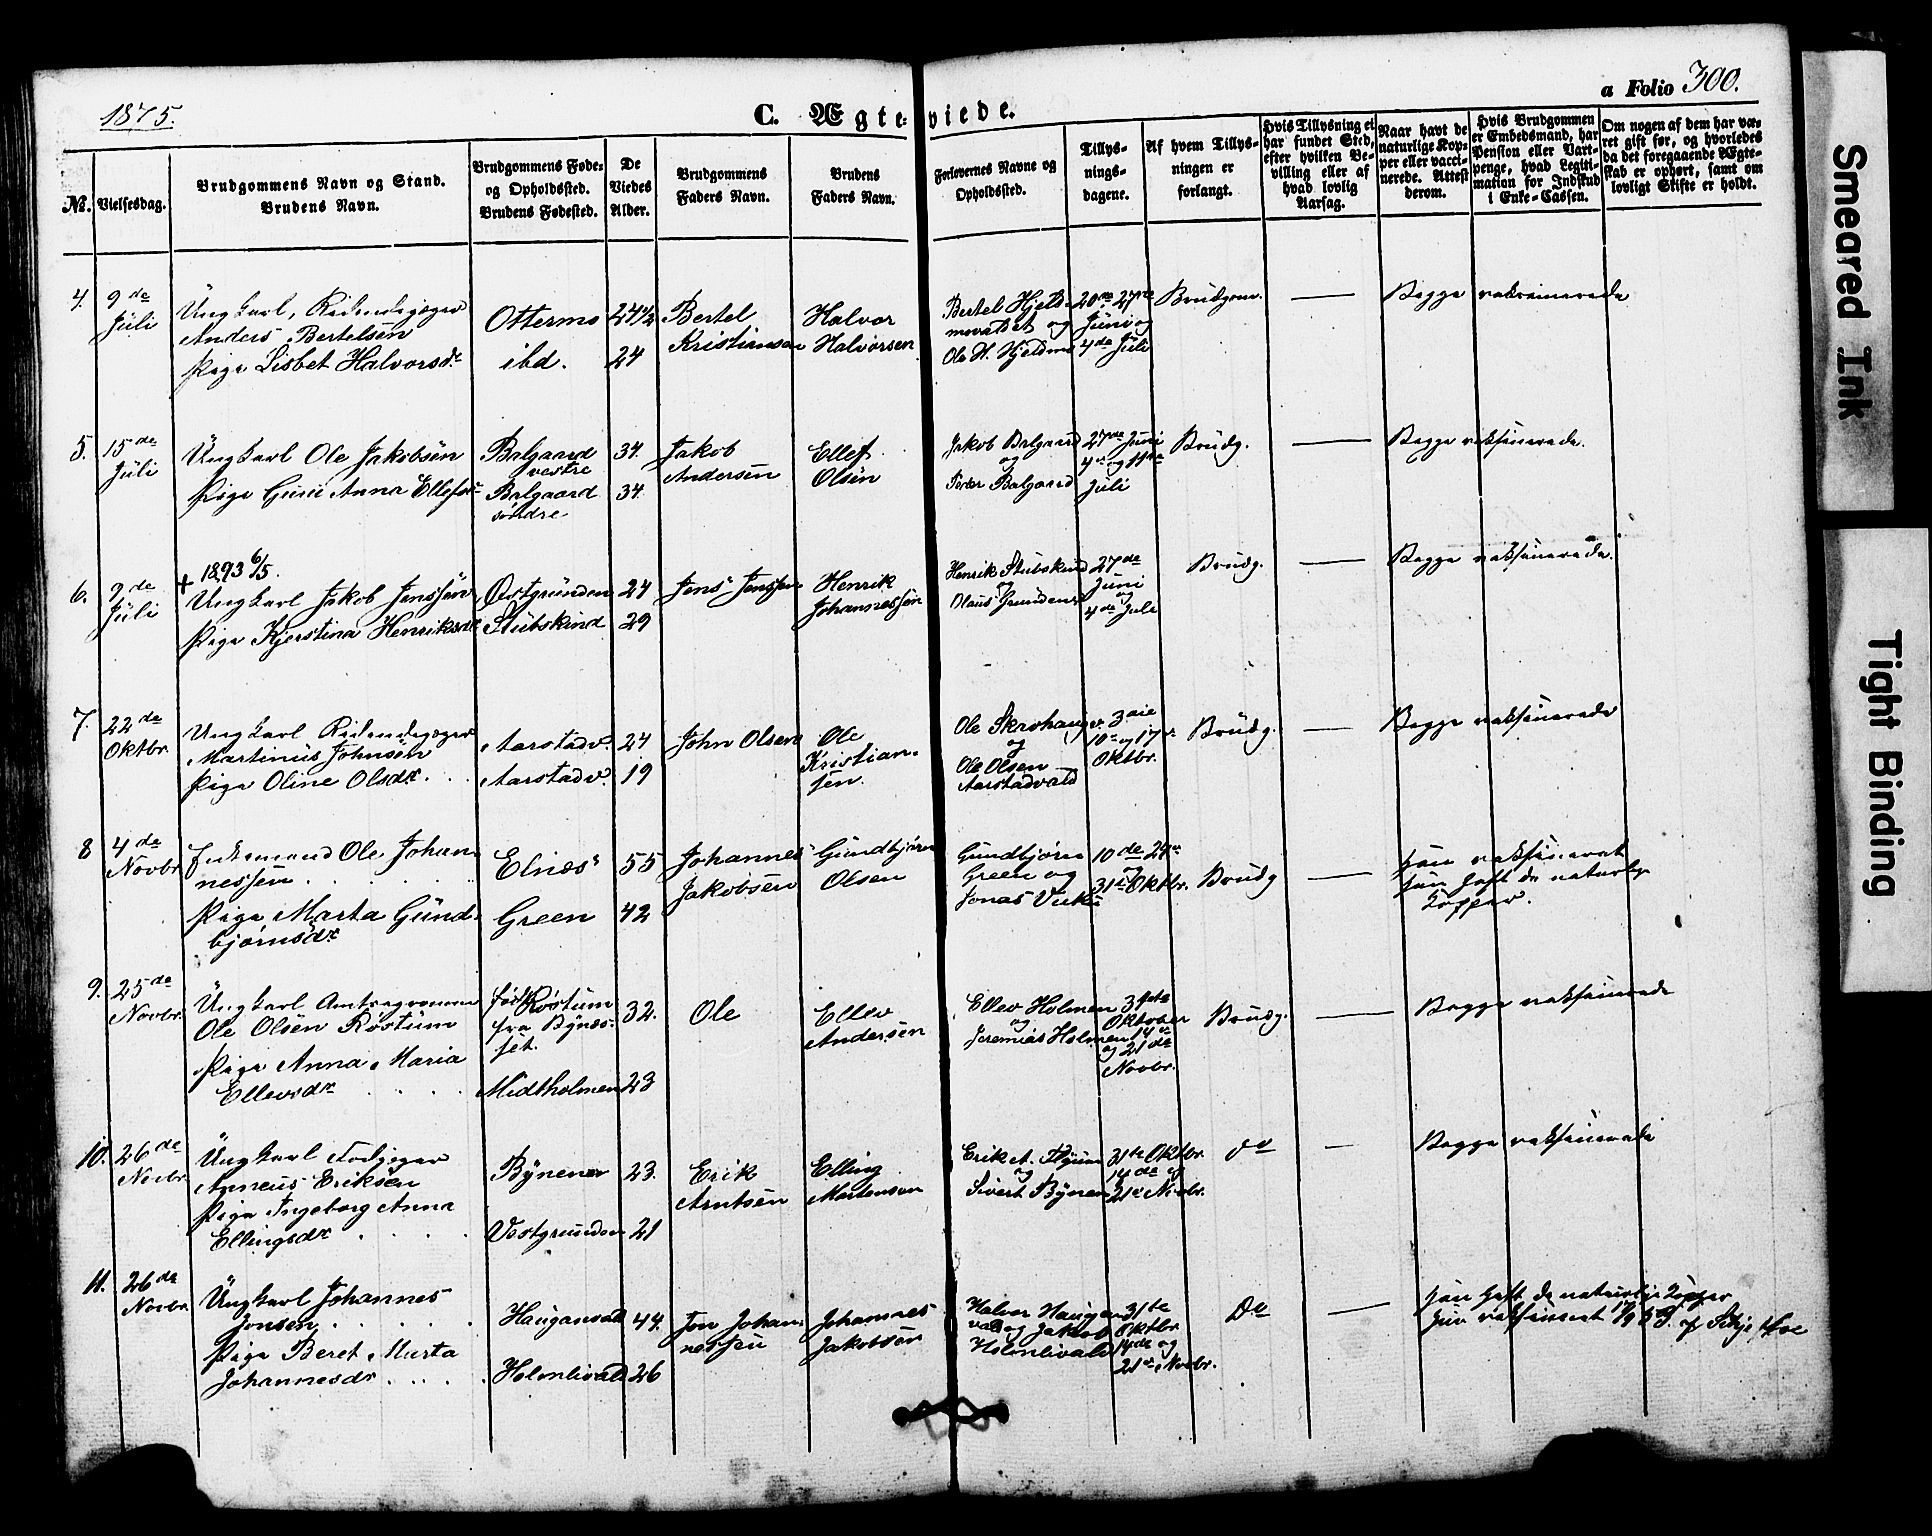 1875.
C. Ægteviede.
a Folio 300.
№.
Vielsesdag.
Brudgommens Navn og Stand.
Brudens Navn.
Brudgommens Føde-
og Opholdssted.
Brudens Fødested.
De
Viedes
Alder.
Brudgommens
Faders Navn.
Brudens
Faders Navn.
Forlovernes Navne og
Opholdssted.
Tillys-
nings-
dagene.
Af hvem Tillys-
ningen er
forlangt.
Hvis Tillysning ei
har fundet Sted,
efter hvilken Be-
villing eller af
hvad lovlig
Aarsag.
Naar havt de
naturlige Kop-
per eller vacci-
nerede. Attest
derom.
Hvis Brudgommen
er Embedsmand, har
Pension eller Vart-
penge, hvad Legiti-
mation for Indskud
i Enke-Cassen.
Om nogen af dem har væ-
ret gift før, og hvorledes
da det foregaaende Ægte-
skab er ophørt, samt om
lovligt Skifte er holdt.
4. 9de
Juli
Ungkarl,
Anders Bertelsen
Pige Lisbet Halvorsdr.
Ottermo
ibd.
24½
24
Bertel
Kristiansen
Halvor
Halvorsen
Bertel
og
Ole H. Hjeldm
20de 27de
Juni og
4de Juli
Brudgom.
Begge vaksinerede
5. 15de
Juli
Ungkarl Ole Jakobsen
Pige Guru Anna Ellefsdr
Balgaard
vestre
Balgaard
søndre
34.
34
Jakob
Andersen
Ellef
Olsen
Jakob Balgaard
og
Peter Balgaard
27de Juni
4de og 11te
Juli
Brudg.
Begge vaksinerede.
+ 1893 6/5.
6. 9de
Juli
Ungkarl Jakob Jenssen
Pige Kjerstina Henriksdr
Østgrunden
Stubskind
24
29
Jens Jenssen
Henrik
Johannessen
Henrik Stubskind
og
Olaus Grunden
27de
Juni
og
4de Juli
Brudg.
Begge vaksinerede.
7. 22de
Oktbr.
Ungkarl
Martinus Johnsen
Pige Oline Olsdr.
Aarstadv.
Aarstadv.
24
19
John Olsen
Ole
Kristian-
sen.
Ole Skrohaug
og
Ole Olsen
Aarstadvald
3die
10de og 17de
Oktbr.
Brudg.
Begge vaksinerede
8 4de
Novbr.
Enkemand Ole Johan-
nessen
Pige Marta Gund-
bjørnsdr
Elnæs
Green
55
42
Johannes
Jakobsen
Gundbjørn
Olsen
Gundbjørn
Green og
Jonas Vuku
10de 24de
31te Oktbr.
Brudg
Han vaksineret
Hun haft de naturlige
Kopper.
9. 25de
Novbr.
Ungkarl Amtsagronom
Ole Olsen Røstum
Pige Anna Maria
Ellevsdr
født Røstum
fra Bynes-
set.
Midtholmen
32.
23
Ole
Ellev
Andersen
Ellev Holmen
og
Jeremias Holmen
31te
Oktober
14de
og 21de
Novbr.
Brudg.
Begge vaksinerede
10. 26de
Novbr.
Ungkarl
Agneus Eriksen
Pige Ingeborg Anna
Ellingsdr
Bynener
Vestgrunden
23.
21
Erik
Arntsen
Elling
Mortensen
Erik A.
og
Sivert Bynen
31te Oktbr.
14de og
21de Novbr.
do
Begge vaksinerede
11. 26de
Novbr.
Ungkarl Johannes
Jonsen
Pige Beret Marta
Johannesdr
Haugansvald
Holmlivald
44.
26
Jon Johan-
nessen
Johannes
Jakobsen
Halvor Haugan-
vald og Jakob
Holmlivald
31te
Oktbr.
14de og
21de Novbr.
Do
Han haft de naturlige Kopper
Hun vaksineret
Smeared Ink
Tight Binding